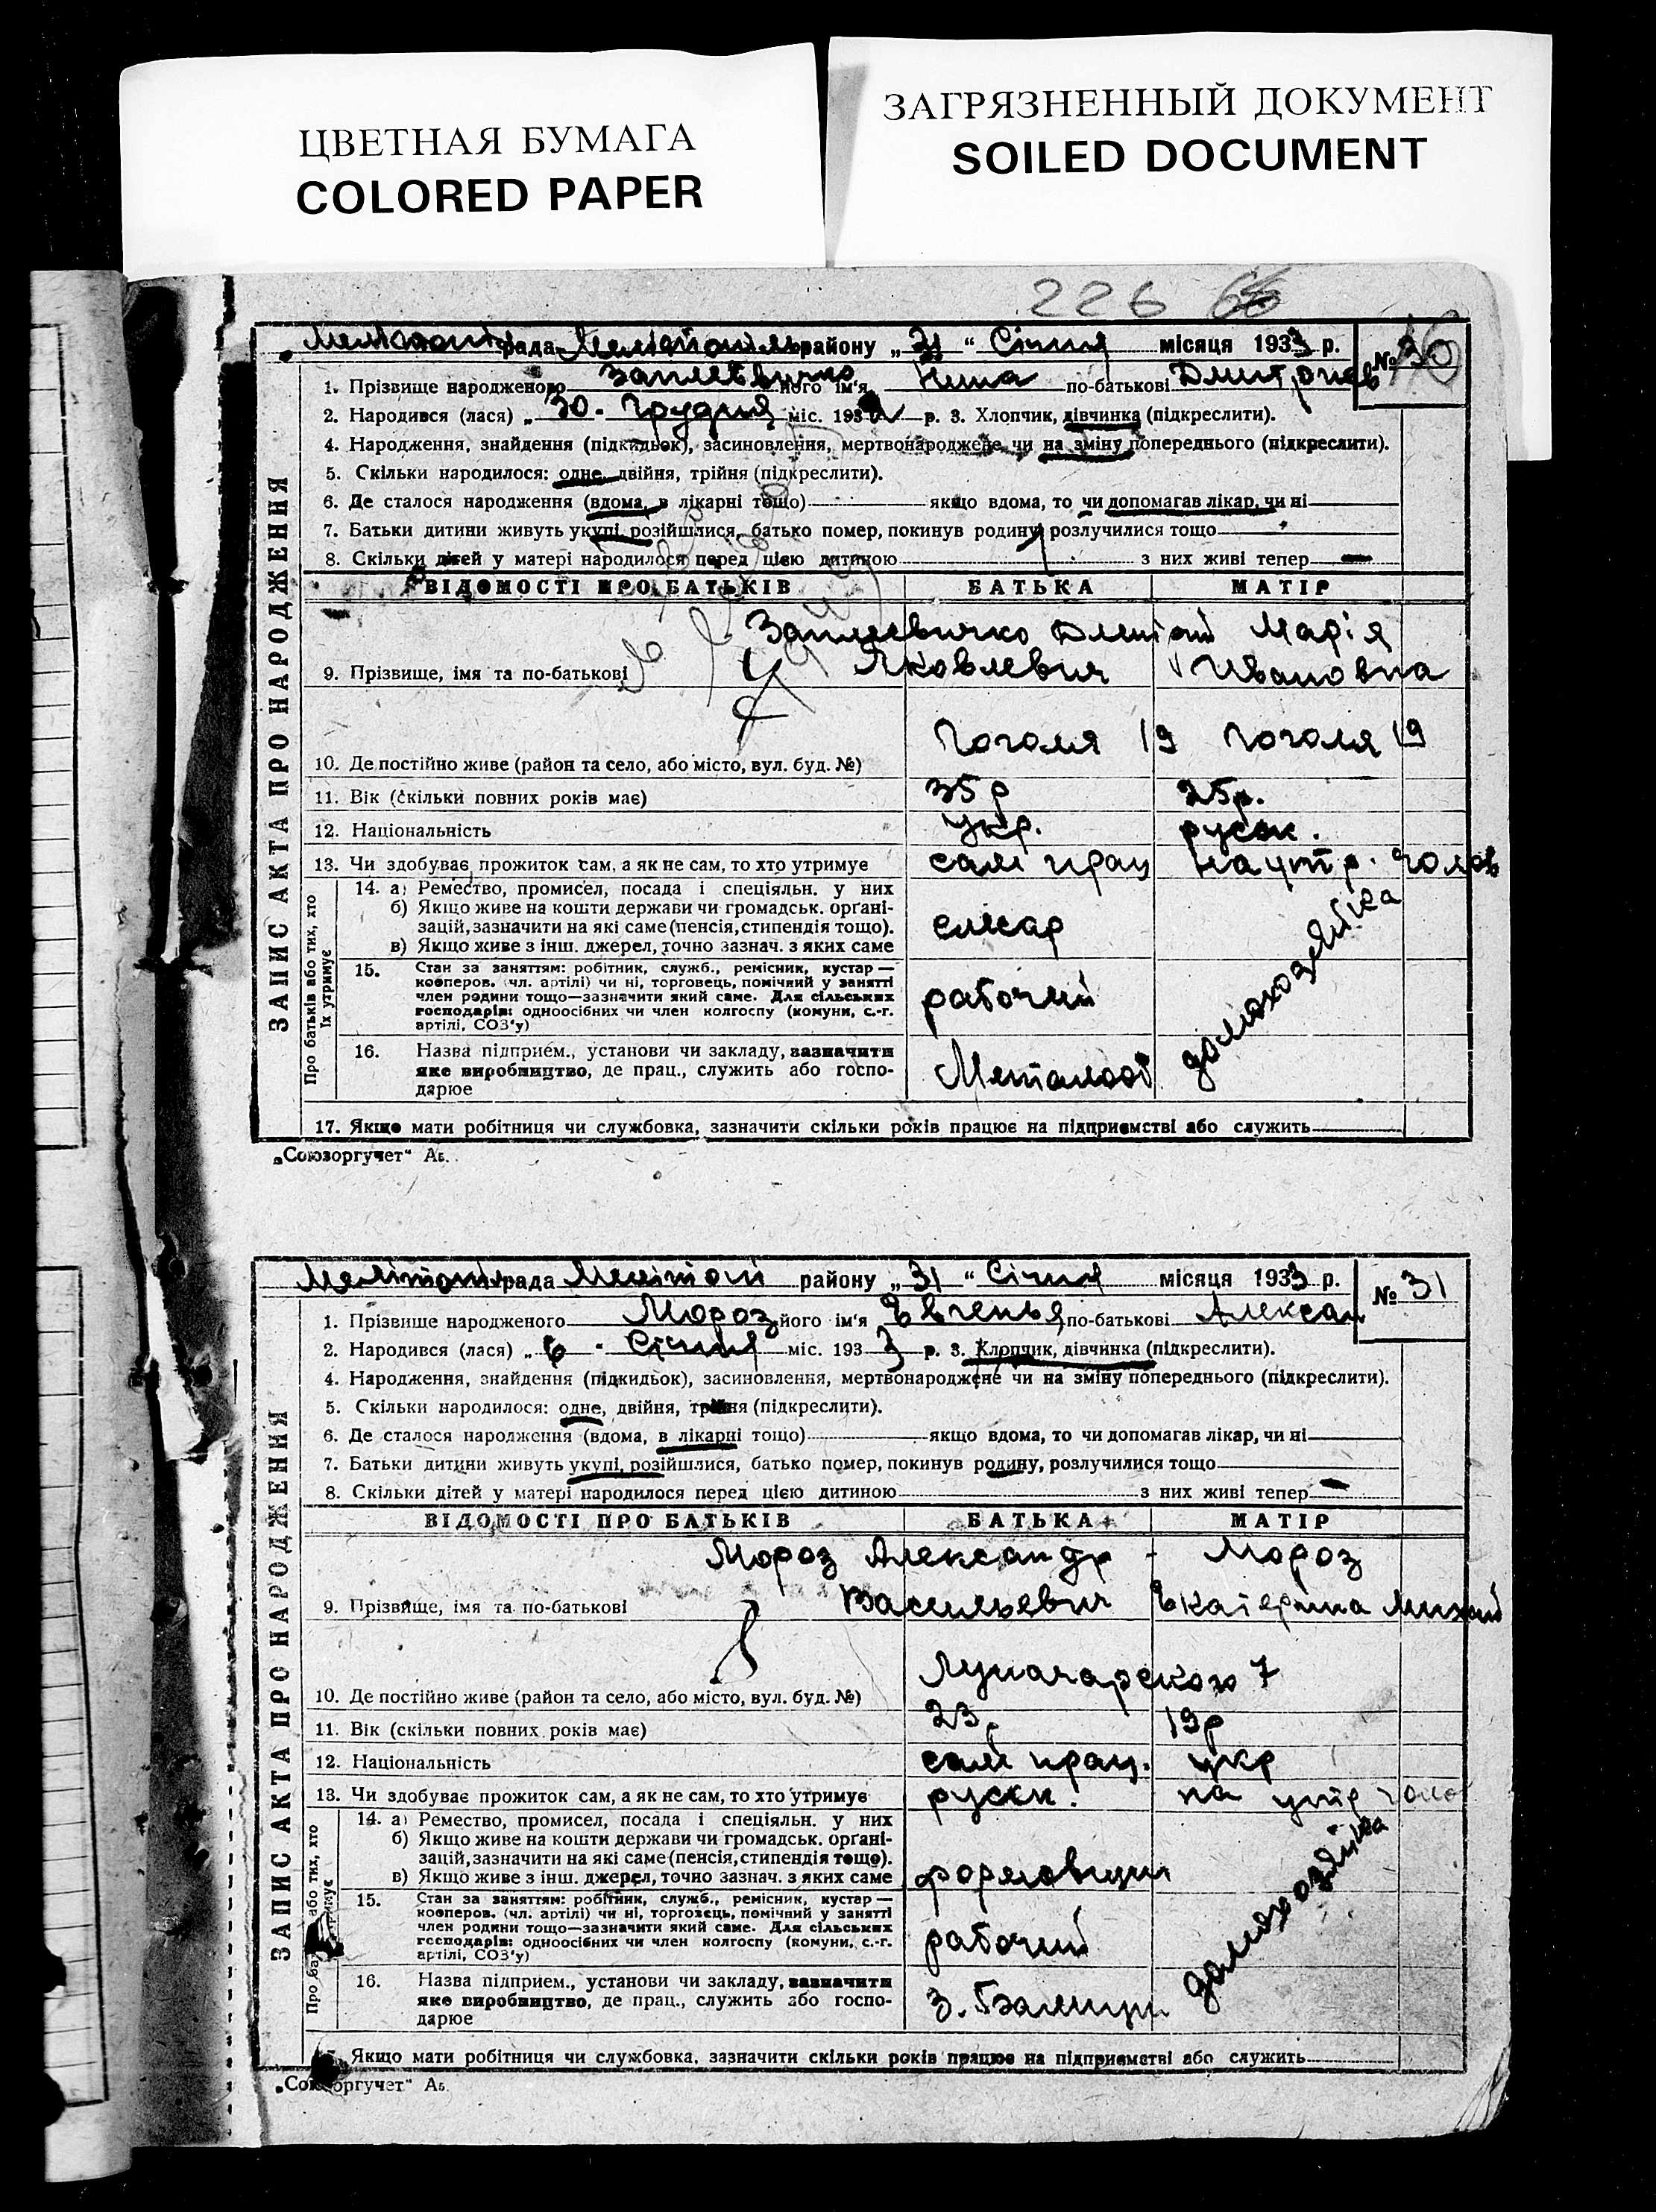 ЦВЕТНАЯ БУМАГА
COLORED PAPER
ЗАГРЯЗНЕННЫЙ ДОКУМЕНТ
SOILED DOCUMENT
226
ЗАПИС АКТА ПРО НАРОДЖЕННЯ
рада району „31“ Січня місяця 1933 р. № 30
1. Прізвище народженого його ім'я Нина по-батькові Дмитриев
2. Народився (лася) „30 - Грудня міс. 193 р. 3. Хлопчик, дівчинка (підкреслити).
4. Народження, знайдення (підкидьок), засиновлення, мертвонароджене чи на зміну попереднього (підкреслити).
5. Скільки народилося: одне, двійня, трійня (підкреслити).
6. Де сталося народження (вдома, в лікарні тощо) якщо вдома, то чи допомагав лікар, чи ні
7. Батьки дитини живуть укупі, розійшлися, батько помер, покинув родину, розлучилися тощо
8. Скільки дітей у матері народилося перед цією дитиною з них живі тепер —
ВІДОМОСТІ ПРО БАТЬКІВ БАТЬКА МАТІР
Марія
9. Прізвище, імя та по-батькові Яковлевич Ивановна
Гоголя 19 Гоголя 19
10. Де постійно живе (район та село, або місто, вул. буд. №)
11. Вік (скільки повних років має) 35 р 25 р.
12. Національність укр. русск.
13. Чи здобуває прожиток сам, а як не сам, то хто утримує сам прац на утр. чолов
Про батьків або тих, хто їх утримує
14. а) Ремество, промисел, посада і спеціяльн. у них
б) Якщо живе на кошти держави чи громадськ. орґані-
зацій, зазначити на які саме (пенсія, стипендія тощо).
в) Якщо живе з інш. джерел, точно зазнач. з яких саме
слесар
домохозяйка
15. Стан за заняттям: робітник, служб., ремісник, кустар —
кооперов. (чл. артілі) чи ні, торговець, помічний у занятті
член родини тощо—зазначити який саме. Для сільських
господарів: одноосібних чи член колгоспу (комуни, с.-г.
артілі, СОЗ'у)
рабочий
16. Назва підприєм., установи чи закладу, зазначити
яке виробництво, де прац., служить або госпо-
дарює
17. Якщо мати робітниця чи службовка, зазначити скільки років працює на підприємстві або служить
„Союзоргучет“
ЗАПИС АКТА ПРО НАРОДЖЕННЯ
рада району „31“ Січня місяця 1933 р. № 31
1. Прізвище народженого Мороз його ім'я Євгенья по-батькові Алексан
2. Народився (лася) „6 - Січня міс. 1933 р. 3. Хлопчик, дівчинка (підкреслити).
4. Народження, знайдення (підкидьок), засиновлення, мертвонароджене чи на зміну попереднього (підкреслити).
5. Скільки народилося: одне, двійня, трійня (підкреслити).
6. Де сталося народження (вдома, в лікарні тощо) якщо вдома, то чи допомагав лікар, чи ні
7. Батьки дитини живуть укупі, розійшлися, батько помер, покинув родину, розлучилися тощо
8. Скільки дітей у матері народилося перед цією дитиною з них живі тепер —
ВІДОМОСТІ ПРО БАТЬКІВ БАТЬКА МАТІР
Мороз Александр - Мороз
9. Прізвище, імя та по-батькові Васильевич Екатерина Михай
Луначарского 7
10. Де постійно живе (район та село, або місто, вул. буд. №)
11. Вік (скільки повних років має) 23 р 19 р
12. Національність сам прац. укр
13. Чи здобуває прожиток сам, а як не сам, то хто утримує русск. на утр чолов
14. а) Ремество, промисел, посада і спеціяльн. у них
б) Якщо живе на кошти держави чи громадськ. орґані-
зацій, зазначити на які саме (пенсія, стипендія тощо).
в) Якщо живе з інш. джерел, точно зазнач. з яких саме
формовщик
домохозяйка
15. Стан за заняттям: робітник, служб., ремісник, кустар —
кооперов. (чл. артілі) чи ні, торговець, помічний у занятті
член родини тощо—зазначити який саме. Для сільських
господарів: одноосібних чи член колгоспу (комуни, с.-г.
артілі, СОЗ'у)
рабочий
16. Назва підприєм., установи чи закладу, зазначити
яке виробництво, де прац., служить або госпо-
дарює
Якщо мати робітниця чи службовка, зазначити скільки років працює на підприємстві або служить